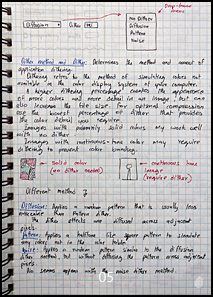 Drop-down menu
Diffusion
Dither
No Dither
Diffusion
Pattern
Noise
Dither method and Dither: Determines the method and amount of
application dithering.
Dithering refers to the method of simulating colors not
available in the color display system of your computer.
A higher dithering percentage creates the appearance
of more colors and more detail in an image, but can
also increase the file size. For optimal compression
use the lowest percentage of dither that provides
the color detail required.
Images with primarily solid colors may work well
with no dither.
Images with continuous-tone color may require
dithering to prevent color banding.
Solid color
(no dither needed)
continuous tone
image
(require dither)
Different method
Diffusion: Applies a random pattern that is usually less
noticeable than Pattern dither.
The dither effects are diffused across adjacent
pixels.
Pattern: Applies a halftone like square pattern to simulate
any colors not in the color table.
Noise: Applies a random pattern similar to the diffusion
dither method, but without diffusing the pattern across adjacent
pixels.
No seams appear with the noise dither method.
05